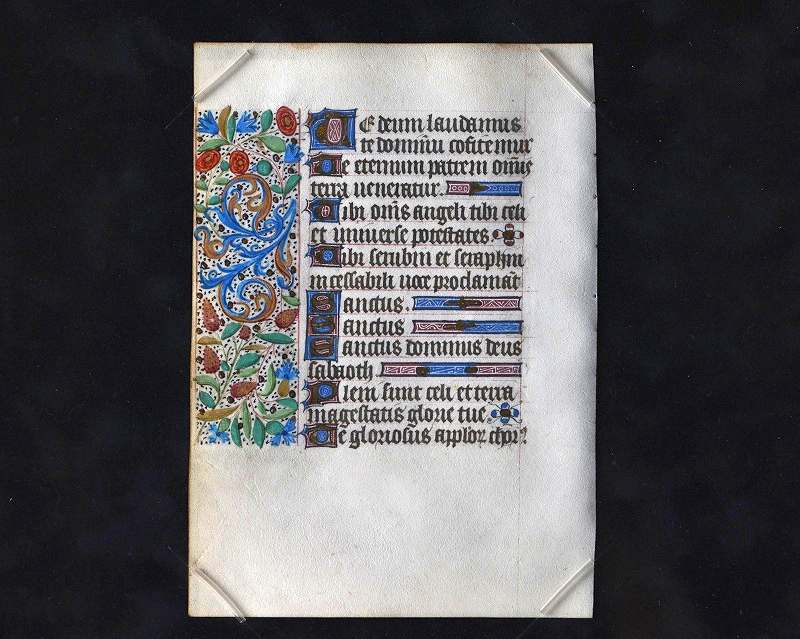 Te deum laudamus
te dominū cōfitemur
Te eternum patrem om̄is
terra ueneratur.
Tibi om̄s angeli tibi celi
et uniuerse potestates.
Tibi cerubim et seraphim
incessabili uoce proclamāt
Sanctus.
Sanctus
Sanctus dominus deus
sabaoth
Pleni sunt celi et terra
magestatis glorie tue.
Te gloriosus